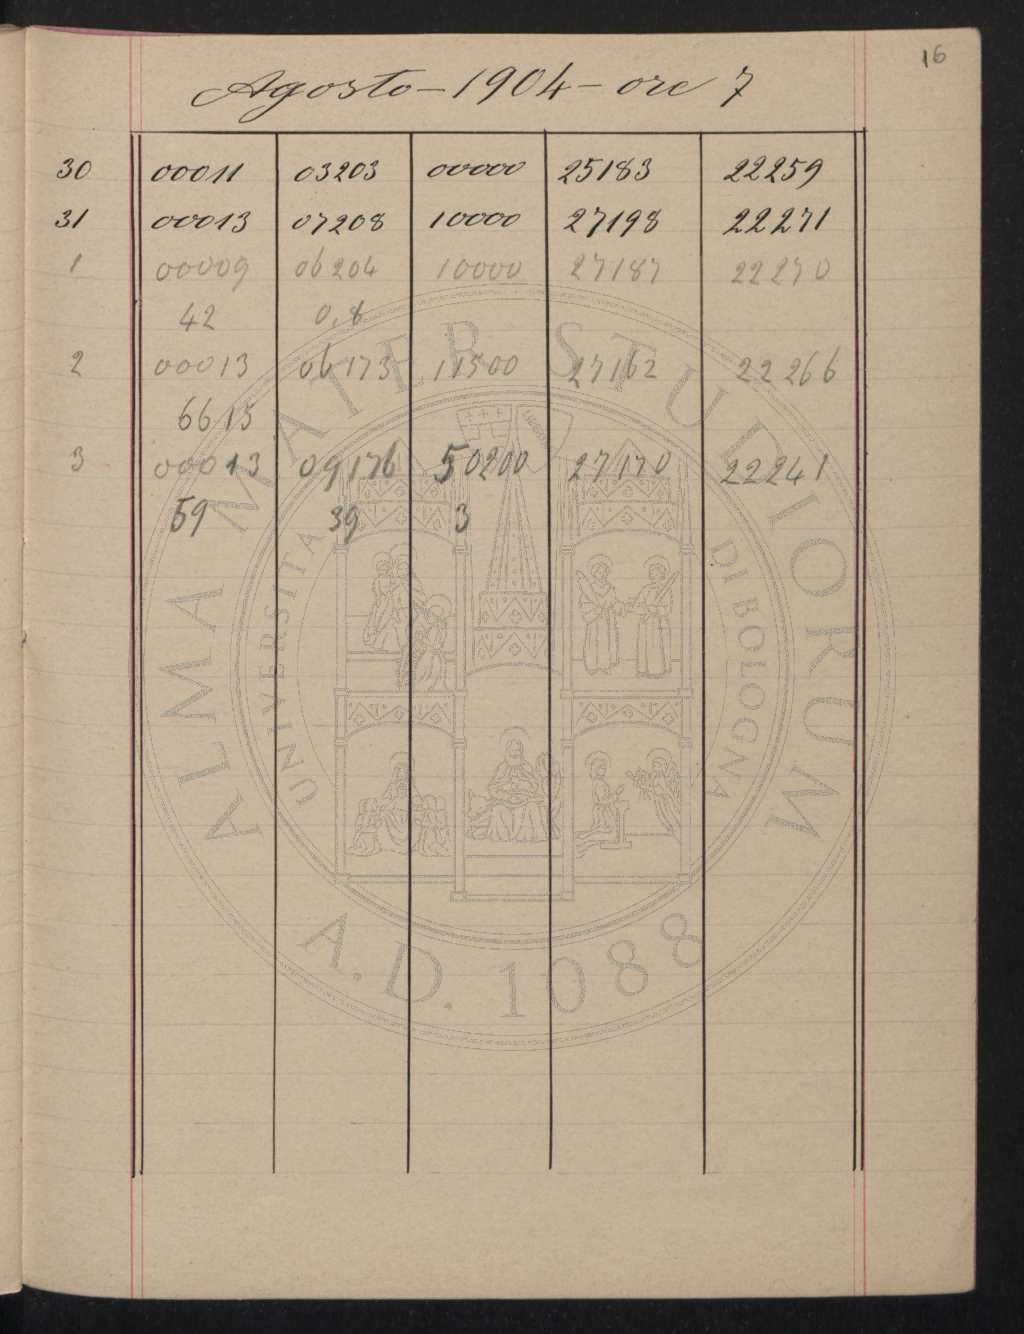 16
Agosto - 1904 - ore 7
30 00011 03203 00000 25183 22259
31 00013 07208 10000 27198 22271
1 00009 06204 10000 27187 22270
42 0,8
2 00013 06173 11500 27162 22266
6615
3 00013 09176 50200 27170 22241
59 39 3
ALMA MATER STUDIORUM
UNIVERSITA DI BOLOGNA
A.D. 1088